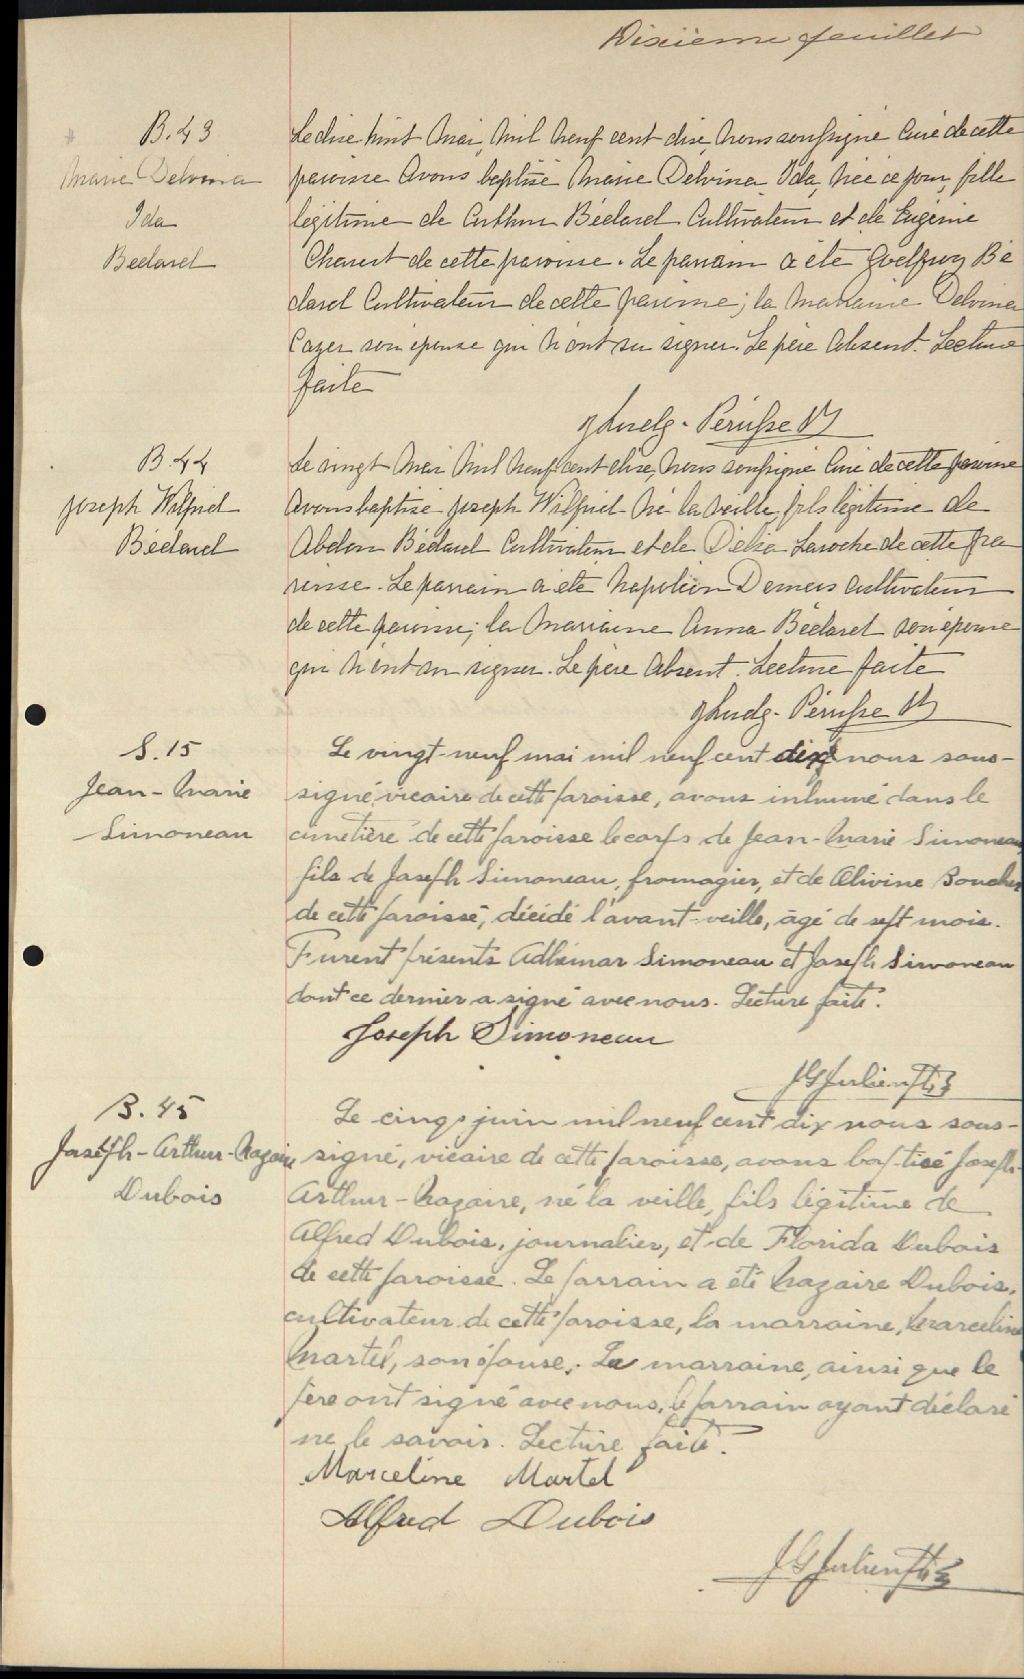 Dixième feuillet
B. 43
Marie Delvina
Ida
Bédard
Le dix huit Mai, Mil Neuf cent dix, Nous soussigné Curé de cette
paroisse Avons baptisé Marie Delvina Ida, Née ce jour, fille
légitime de Arthur Bédard Cultivateur et de Eugénie
Charest de cette paroisse. Le parrain a été Godfroy Bé
dard Cultivateur de cette paroisse; la Marraine Delvina
Cazer son épouse qui N'ont su signer. Le père Absent. Lecture
faite
J Ludg. Pérusse Ptr
B. 44
Joseph Wilfrid
Bédard
Le vingt Mai Mil Neuf cent dix, Nous soussigné Curé de cette paroisse
Avons baptisé Joseph Wilfrid Né la veille, fils légitime de
Abdon Bédard Cultivateur et de Délia Laroche de cette pa
roisse. Le parrain a été Napoléon Demers cultivateur
de cette paroisse; la Marraine Anna Bédard son épouse
qui N'ont su signer. Le père Absent. Lecture faite
J Ludg. Pérusse Ptr
S. 15
Jean-Marie
Simoneau
Le vingt-neuf mai mil neuf cent dix nous sous-
signé, vicaire de cette paroisse, avons inhumé dans le
cimetière de cette paroisse le corps de Jean-Marie Simoneau,
fils de Joseph Simoneau, fromagier, et de Olivine Boucher
de cette paroisse, décédé l'avant-veille, âgé de sept mois.
Furent présents Adhémar Simoneau et Joseph Simoneau
dont ce dernier a signé avec nous. Lecture faite.
Joseph Simoneau
J G Julien Ptr
B. 45
Joseph-Arthur-Nazaire
Dubois
Le cinq juin mil neuf cent dix nous sous-
signé, vicaire de cette paroisse, avons baptisé Joseph-
Arthur-Nazaire, né la veille, fils légitime de
Alfred Dubois, journalier, et de Florida Dubois
de cette paroisse. Le parrain a été Nazaire Dubois,
cultivateur de cette paroisse, la marraine, Marceline
Martel, son épouse. La marraine, ainsi que le
père ont signé avec nous, le parrain ayant déclaré
ne le savoir. Lecture faite.
Marceline Martel
Alfred Dubois
J G Julien Ptr